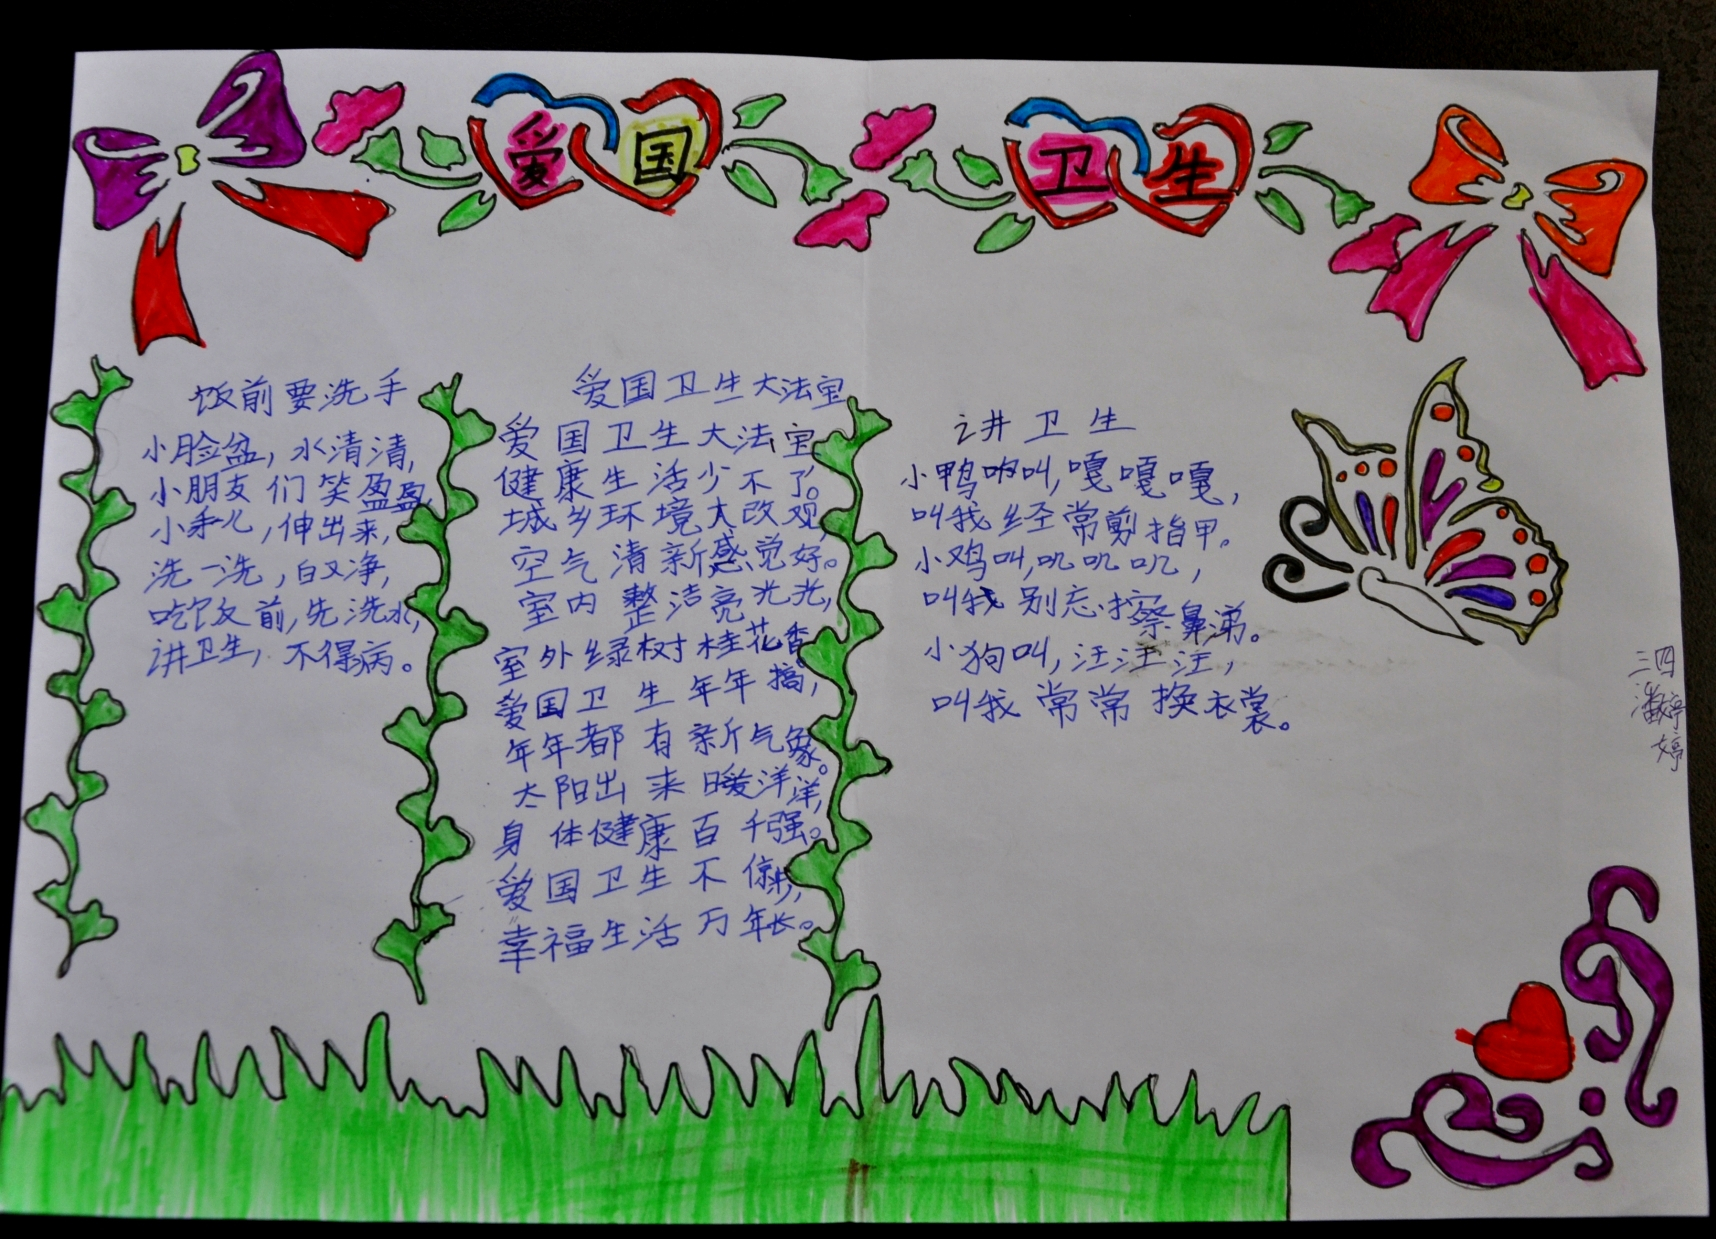 爱国卫生
饭前要洗手
小脸盆，水清清，
小朋友们笑盈盈，
小手儿，伸出来，
洗一洗，白又净，
吃饭前，先洗水，
讲卫生，不得病。
爱国卫生大法宝
爱国卫生大法宝
健康生活少不了。
城乡环境大改观，
空气清新感觉好。
室内整洁亮光光，
室外绿树桂花香。
爱国卫生年年搞，
年年都有新气象。
太阳出来暖洋洋，
身体健康百千强。
爱国卫生不停步，
幸福生活万年长。
讲卫生
小鸭叫，嘎嘎嘎，
叫我经常剪指甲。
小鸡叫，叽叽叽，
叫我别忘擦鼻涕。
小狗叫，汪汪汪，
叫我常常换衣裳。
三四
潘婷婷